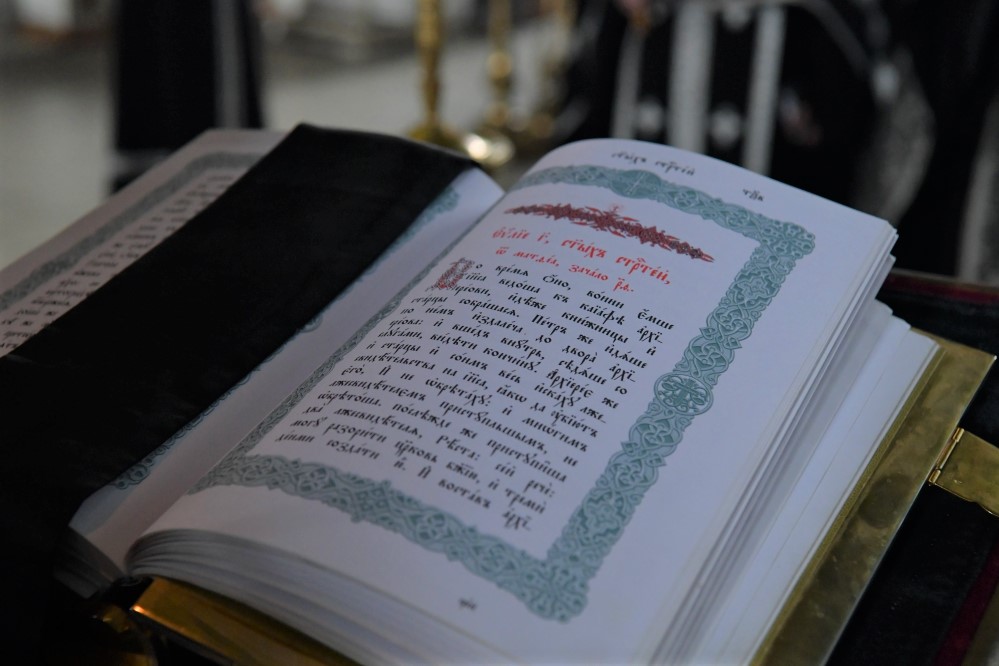 ст҃ы́хъ стрⷭ҇те́й
Єѵⷢ҇лїе г҃, ст҃ы́хъ стрⷭ҇те́й,
ѿ матѳе́а, зача́ло р҃ѳ.
Во вре́мѧ ѻ҆́но, во́ини є҆́мше
і҆и҃са ведо́ша къ каїа́фѣ а҆рхї-
ере́ови, и҆дѣ́же кни́жницы и҆
ста́рцы собра́шасѧ. Пе́тръ же и҆дѧ́ше
по не́мъ и҆здале́ча до двора̀ а҆рхї-
ере́ова: и҆ вше́дъ внꙋ́трь, сѣдѧ́ше со
слꙋга́ми, ви́дѣти кончи́нꙋ. А҆рхїере́є же
и҆ ста́рцы и҆ со́нмъ ве́сь и҆ска́хꙋ лже-
свидѣ́тельства на і҆и҃са, ꙗ҆́кѡ да ᲂу҆бїю́тъ
є҆го̀. И҆ не ѡ҆брѣта́хꙋ: и҆ мнѡ́гимъ
лжесвидѣ́телємъ пристꙋ́пльшымъ, не
ѡ҆брѣто́ша. послѣди́ же пристꙋпи̑вша
два̀ лжесвидѣ́тєлѧ, рѣ́ста: се́й речѐ:
могꙋ̀ разори́ти цр҃ковь бж҃їю, и҆ тремѝ
де́нми созда́ти ю҆̀. И҆ воста́въ а҆рхї-